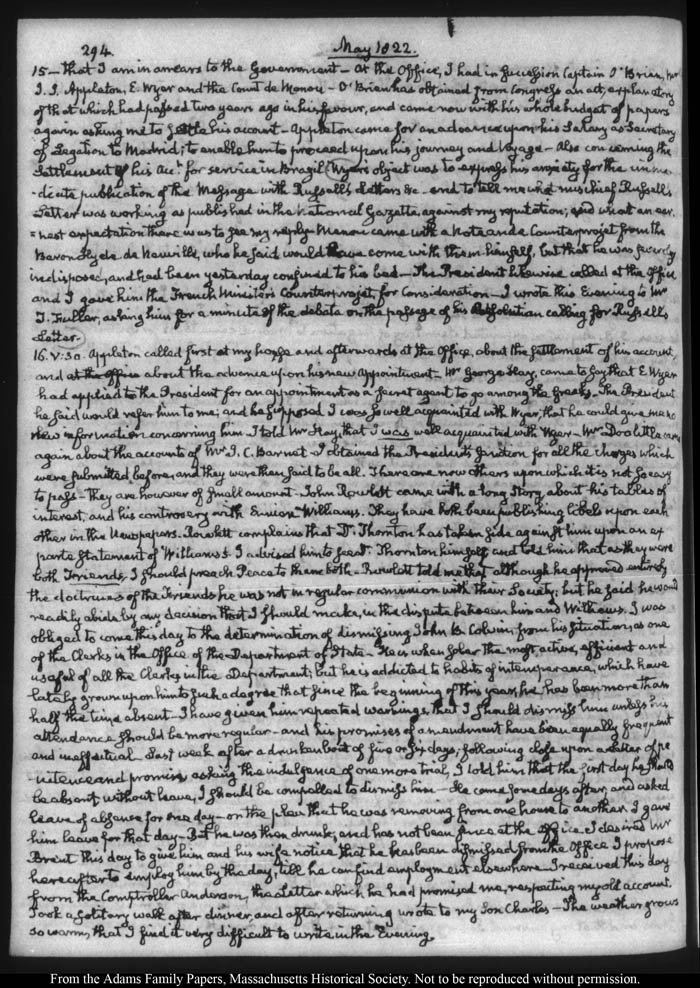 294.
May 1822.
15 — that I am in arrears to the Government — At the Office, I had in succession Captain O'Brien, Mr
J. J. Appleton, E. Wyer and the Count de Menou — O'Brien has obtained from Congress an act, explanatory
of that which had passed two years ago in his favour, and came now with his whole budget of papers
again asking me to settle his account — Appleton came for an advance upon his Salary as Secretary
of Legation to Madrid; to enable him to proceed upon his journey and Voyage — Also concerning the
Settlement of his Acct. for service in Brazil. Wyer's object was to express his anxiety for the imme-
-diate publication of the Message with Russell's Letters &c — and to tell me what mischief Russell's
Letter was working as published in the National Gazette against my reputation; and what an ear-
=nest expectation there was to see my reply — Menou came with a Note and a Counterprojet from the
Baron Hyde de Neuville, who he said would have come with them himself, but that he was severely
indisposed, and had been yesterday confined to his bed — The President likewise called at the Office
and I gave him the French Minister's Counterprojet, for consideration — I wrote this Evening to Mr
T. Fuller, asking him for a minute of the debate on the passage of his Resolution calling for Russell's
Letter.
16. V:30. Appleton called first at my house and afterwards at the Office, about the settlement of his account,
and at the office about the advance upon his new appointment — Mr George Hay, came to say that E. Wyer
had applied to the President for an appointment as a secret agent to go among the Greeks — The President
he said would refer him to me; and he supposed I was so well acquainted with Wyer, that he could give me no
new information concerning him. I told Mr Hay, that I was well acquainted with Wyer — Mr Doolittle came
again about the accounts of Mr I. C. Barnet — I obtained the President's sanction for all the charges which
were submitted before, and they were then said to be all. There are now others upon which it is not so easy
to pass — They are however of small amount — John Rowlett came with a long story about his tables of
interest, and his controversy with Williams. They have both been publishing libels upon each
other in the Newspapers. Rowlett complains that Dr. Thornton has taken side against him upon an ex
parte statement of Williams's. I advised him to see Dr. Thornton himself, and told him that as they were
both Friends, I should preach Peace to them both — Rowlett told me that although he approved entirely
the doctrines of the Friends he was not in regular communion with their Society; but he said he would
readily abide by any decision that I should make, in the dispute between him and Williams. I was
obliged to come this day to the determination of dismissing John B. Colvin, from his situation, as one
of the Clerks in the Office of the Department of State — He is when sober the most active, efficient and
useful of all the Clerks in the Department; but he is addicted to habits of intemperance, which have
lately grown upon him to such a degree that since the beginning of this year, he has been more than
half the time absent — I have given him repeated warnings, that I should dismiss him unless his
attendance should be more regular — and his promises of amendment have been equally frequent
and ineffectual. Last week after a drunken bout of five or six days, following close upon a letter of pe
-nitence and promise, asking the indulgence of one more trial, I told him that the first day he should
be absent without leave, I should be compelled to dismiss him — He came some days after, and asked
leave of absence for one day — on the plea that he was removing from one house to another. I gave
him leave for that day — But he was then drunk, and has not been since at the office. I desired Mr
Brent this day to give him and his wife notice that he has been dismissed from the Office. I propose
hereafter to employ him by the day, till he can find employment elsewhere. I received this day
from the Comptroller Anderson, the Letter which he had promised me, respecting my old account.
Took a solitary walk after dinner, and after returning wrote to my Son Charles — The weather grows
so warm, that I find it very difficult to write in the Evening.
From the Adams Family Papers, Massachusetts Historical Society. Not to be reproduced without permission.